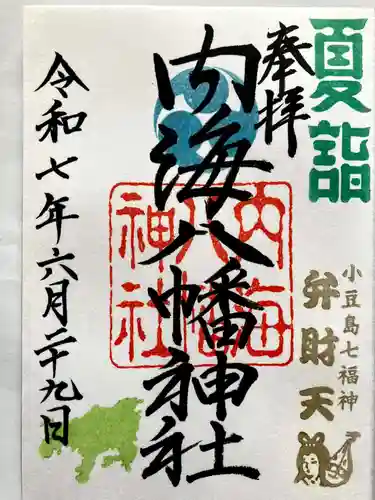 夏詣
奉拝
小豆島七福神
弁財天
内海八幡神社
内海八幡神社
令和七年六月二十九日